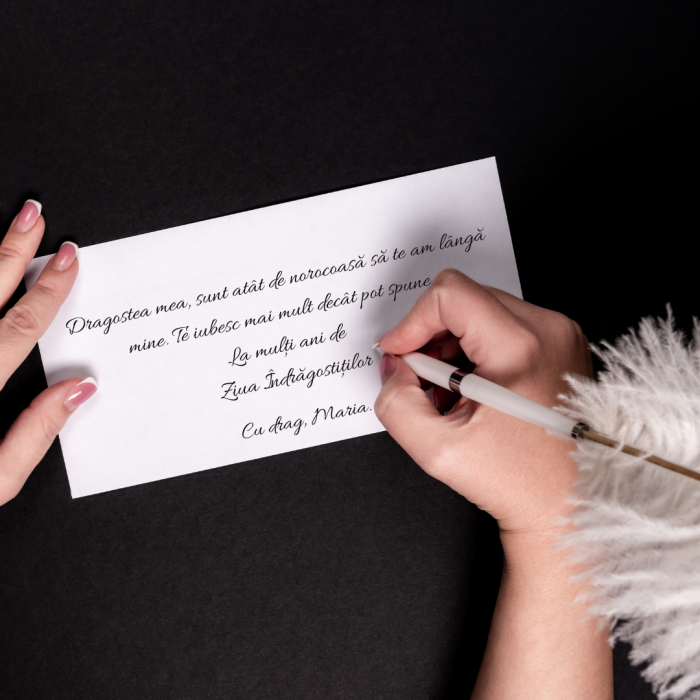 Dragostea mea, sunt atât de norocoasă să te am lângă
mine. Te iubesc mai mult decât pot spune
La mulți ani de
Ziua Îndrăgostiților
Cu drag, Maria.